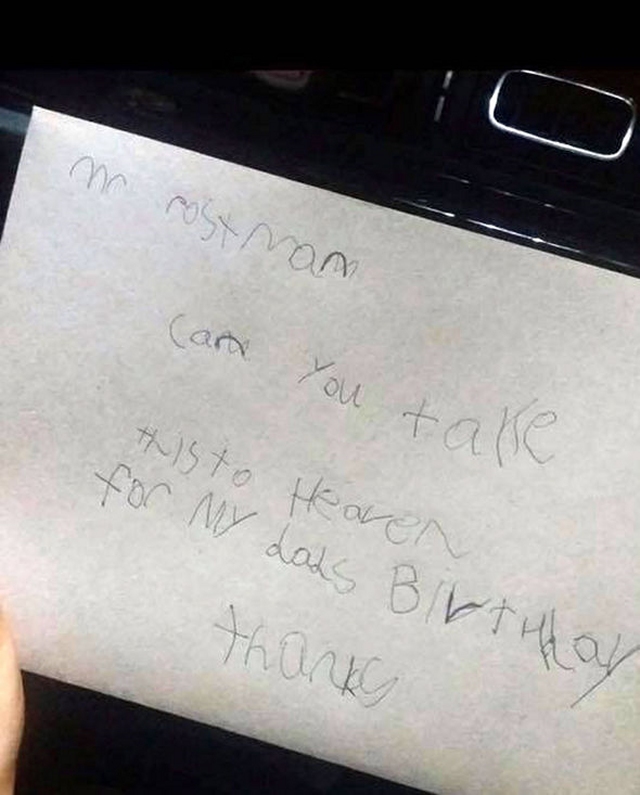 Mr PostMan
Can You take
this to Heaven
for My dads BirtHday
thanks